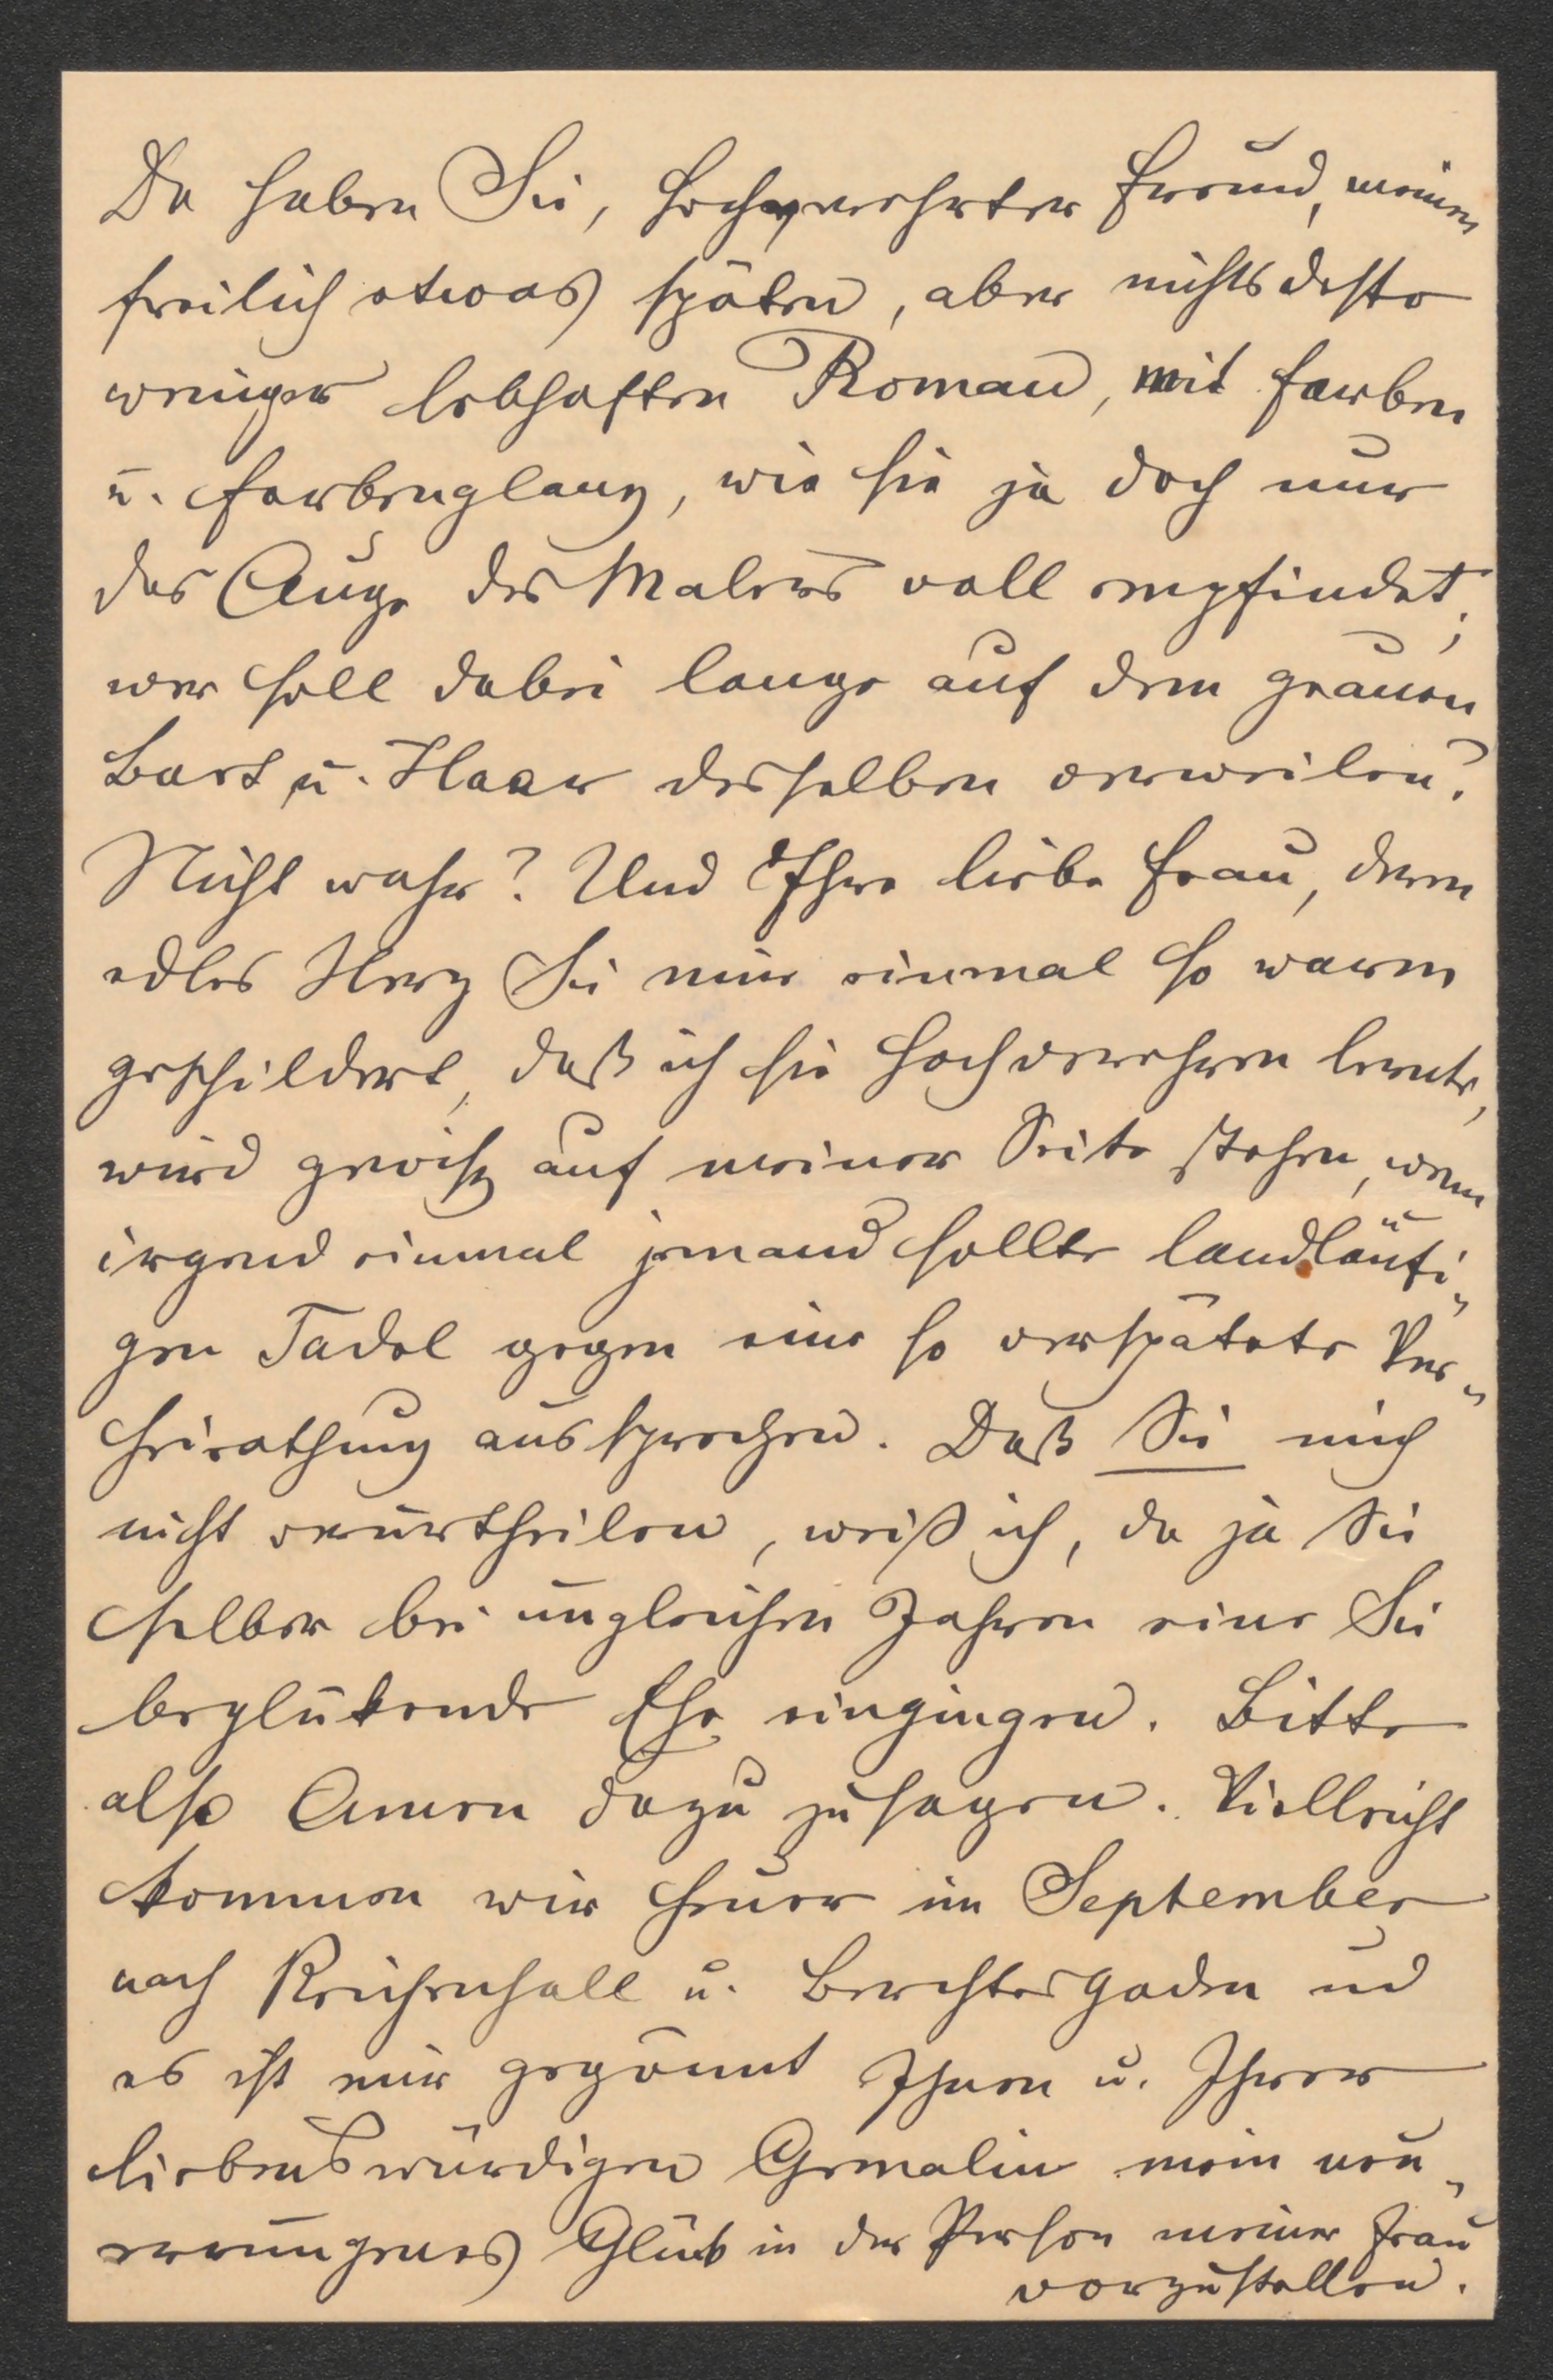 Da haben Sie, hochverehrter Freund, meinen
freilich etwas späten, aber nichts desto
weniger lebhaften Roman, mit Farben
u. Farbenglanz, wie sie ja doch nur
das Auge des Malers voll empfindet;
wer soll dabei lange auf dem grauen
Bart u. Haar desselben verweilen?
Nicht wahr? Und Ihre liebe Frau, deren
edles Herz Sie mir einmal so warm
geschildert, daß ich sie hochverehren lernte,
wird gewiß auf meiner Seite stehen, wenn
irgend einmal jemand sollte landläufi-
gen Tadel gegen eine so verspätete Ver-
heirathung aussprechen. Daß Sie mich
nicht verurtheilen, weiß ich, da ja Sie
selber bei ungleichen Jahren eine Sie
beglükende Ehe eingingen. Bitte
also Amen dazu zu sagen. Vielleicht
kommen wir heuer im September
nach Reichenhall u. Berchtesgaden und
es ist mir gegönnt Ihnen u. Ihrer
liebenswürdigen Gemalin mein neu-
errungenes Glük in der Person meiner Frau
vorzustellen.